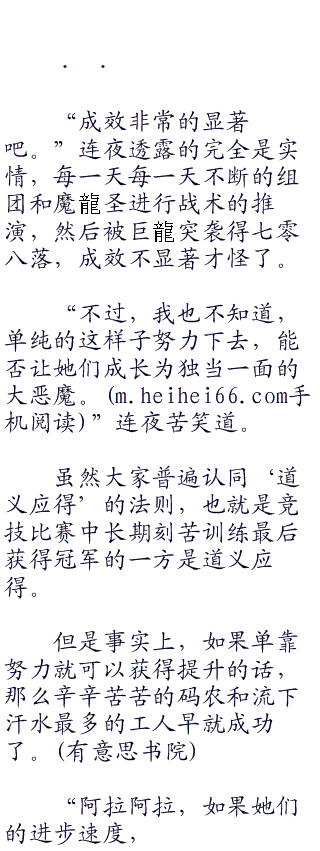 ． ．
“成效非常的显著
吧。”连夜透露的完全是实
情，每一天每一天不断的组
团和魔龍圣进行战术的推
演，然后被巨龍突袭得七零
八落，成效不显著才怪了。
“不过，我也不知道，
单纯的这样子努力下去，能
否让她们成长为独当一面的
大恶魔。(m.heihei66.com手
机阅读)”连夜苦笑道。
虽然大家普遍认同‘道
义应得’的法则，也就是竞
技比赛中长期刻苦训练最后
获得冠军的一方是道义应
得。
但是事实上，如果单靠
努力就可以获得提升的话，
那么辛辛苦苦的码农和流下
汗水最多的工人早就成功
了。(有意思书院)
“阿拉阿拉，如果她们
的进步速度，